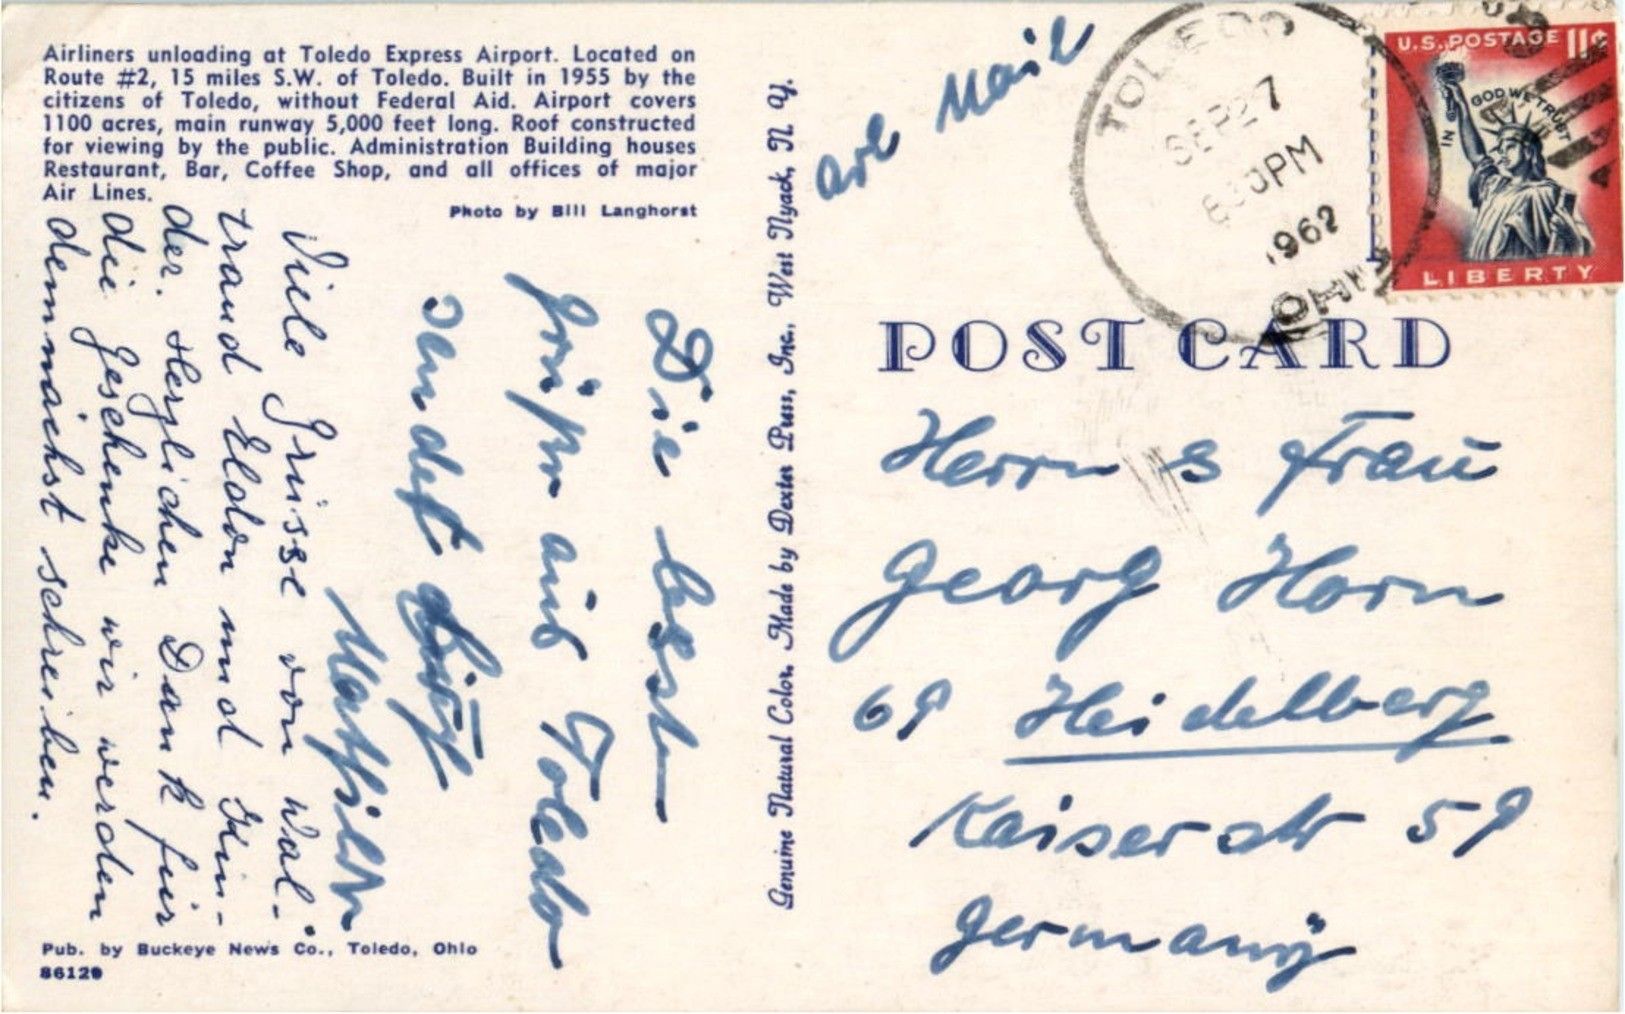 Airliners unloading at Toledo Express Airport. Located on
Route #2, 15 miles S.W. of Toledo. Built in 1955 by the
citizens of Toledo, without Federal Aid. Airport covers
1100 acres, main runway 5,000 feet long. Roof constructed
for viewing by the public. Administration Building houses
Restaurant, Bar, Coffee Shop, and all offices of major
Air Lines.
Photo by Bill Langhorst
Die besten
Grüße aus Toledo
sendet Euch
Mathilde
Viele Grüsse von Wal-
traud Eldon und Kin-
der. Herzlichen Dank für
die Geschenke wir werden
demnächst schreiben.
Pub. by Buckeye News Co., Toledo, Ohio
86129
Genuine Natural Color. Made by Dexter Press, Inc., West Nyack, N. Y.
Mail
TOLEDO
SEP 27
PM
1962
OHIO
U.S. POSTAGE 11¢
IN GOD WE TRUST
LIBERTY
POST CARD
Herrn & Frau
Georg Horn
69 Heidelberg
Kaiserstr 59
Germany